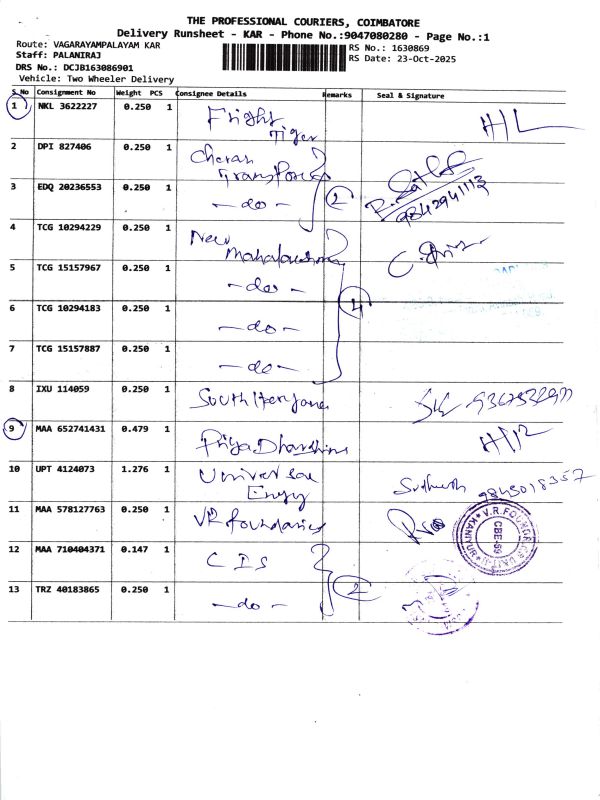 THE PROFESSIONAL COURIERS, COIMBATORE
Delivery Runsheet - KAR - Phone No.:9047080280 - Page No.:1
Route: VAGARAYAMPALAYAM KAR
RS No.: 1630869
Staff: PALANIRAJ
RS Date: 23-Oct-2025
DRS No.: DCJB163086901
Vehicle: Two Wheeler Delivery
S.No Consignment No Weight PCS Consignee Details Remarks Seal & Signature
1 NKL 3622227 0.250 1 Fright
Tiger
2 DPI 827406 0.250 1 Cheran
Transporee
3 EDQ 20236553 0.250 1 -do- 2
9842941113
4 TCG 10294229 0.250 1 New
Mahalakshmi
5 TCG 15157967 0.250 1 -do-
4
6 TCG 10294183 0.250 1 -do-
7 TCG 15157887 0.250 1 -do-
8 IXU 114059 0.250 1 South Heryana
9 MAA 652741431 0.479 1 Priya Dharshini
10 UPT 4124073 1.276 1 Universal
Enrgy
11 MAA 578127763 0.250 1 VR foundaries
V.R.FOUNDRIES UNIT-II KANIYUR CBE-59
12 MAA 710404371 0.147 1 CIS
2
13 TRZ 40183865 0.250 1 -do-